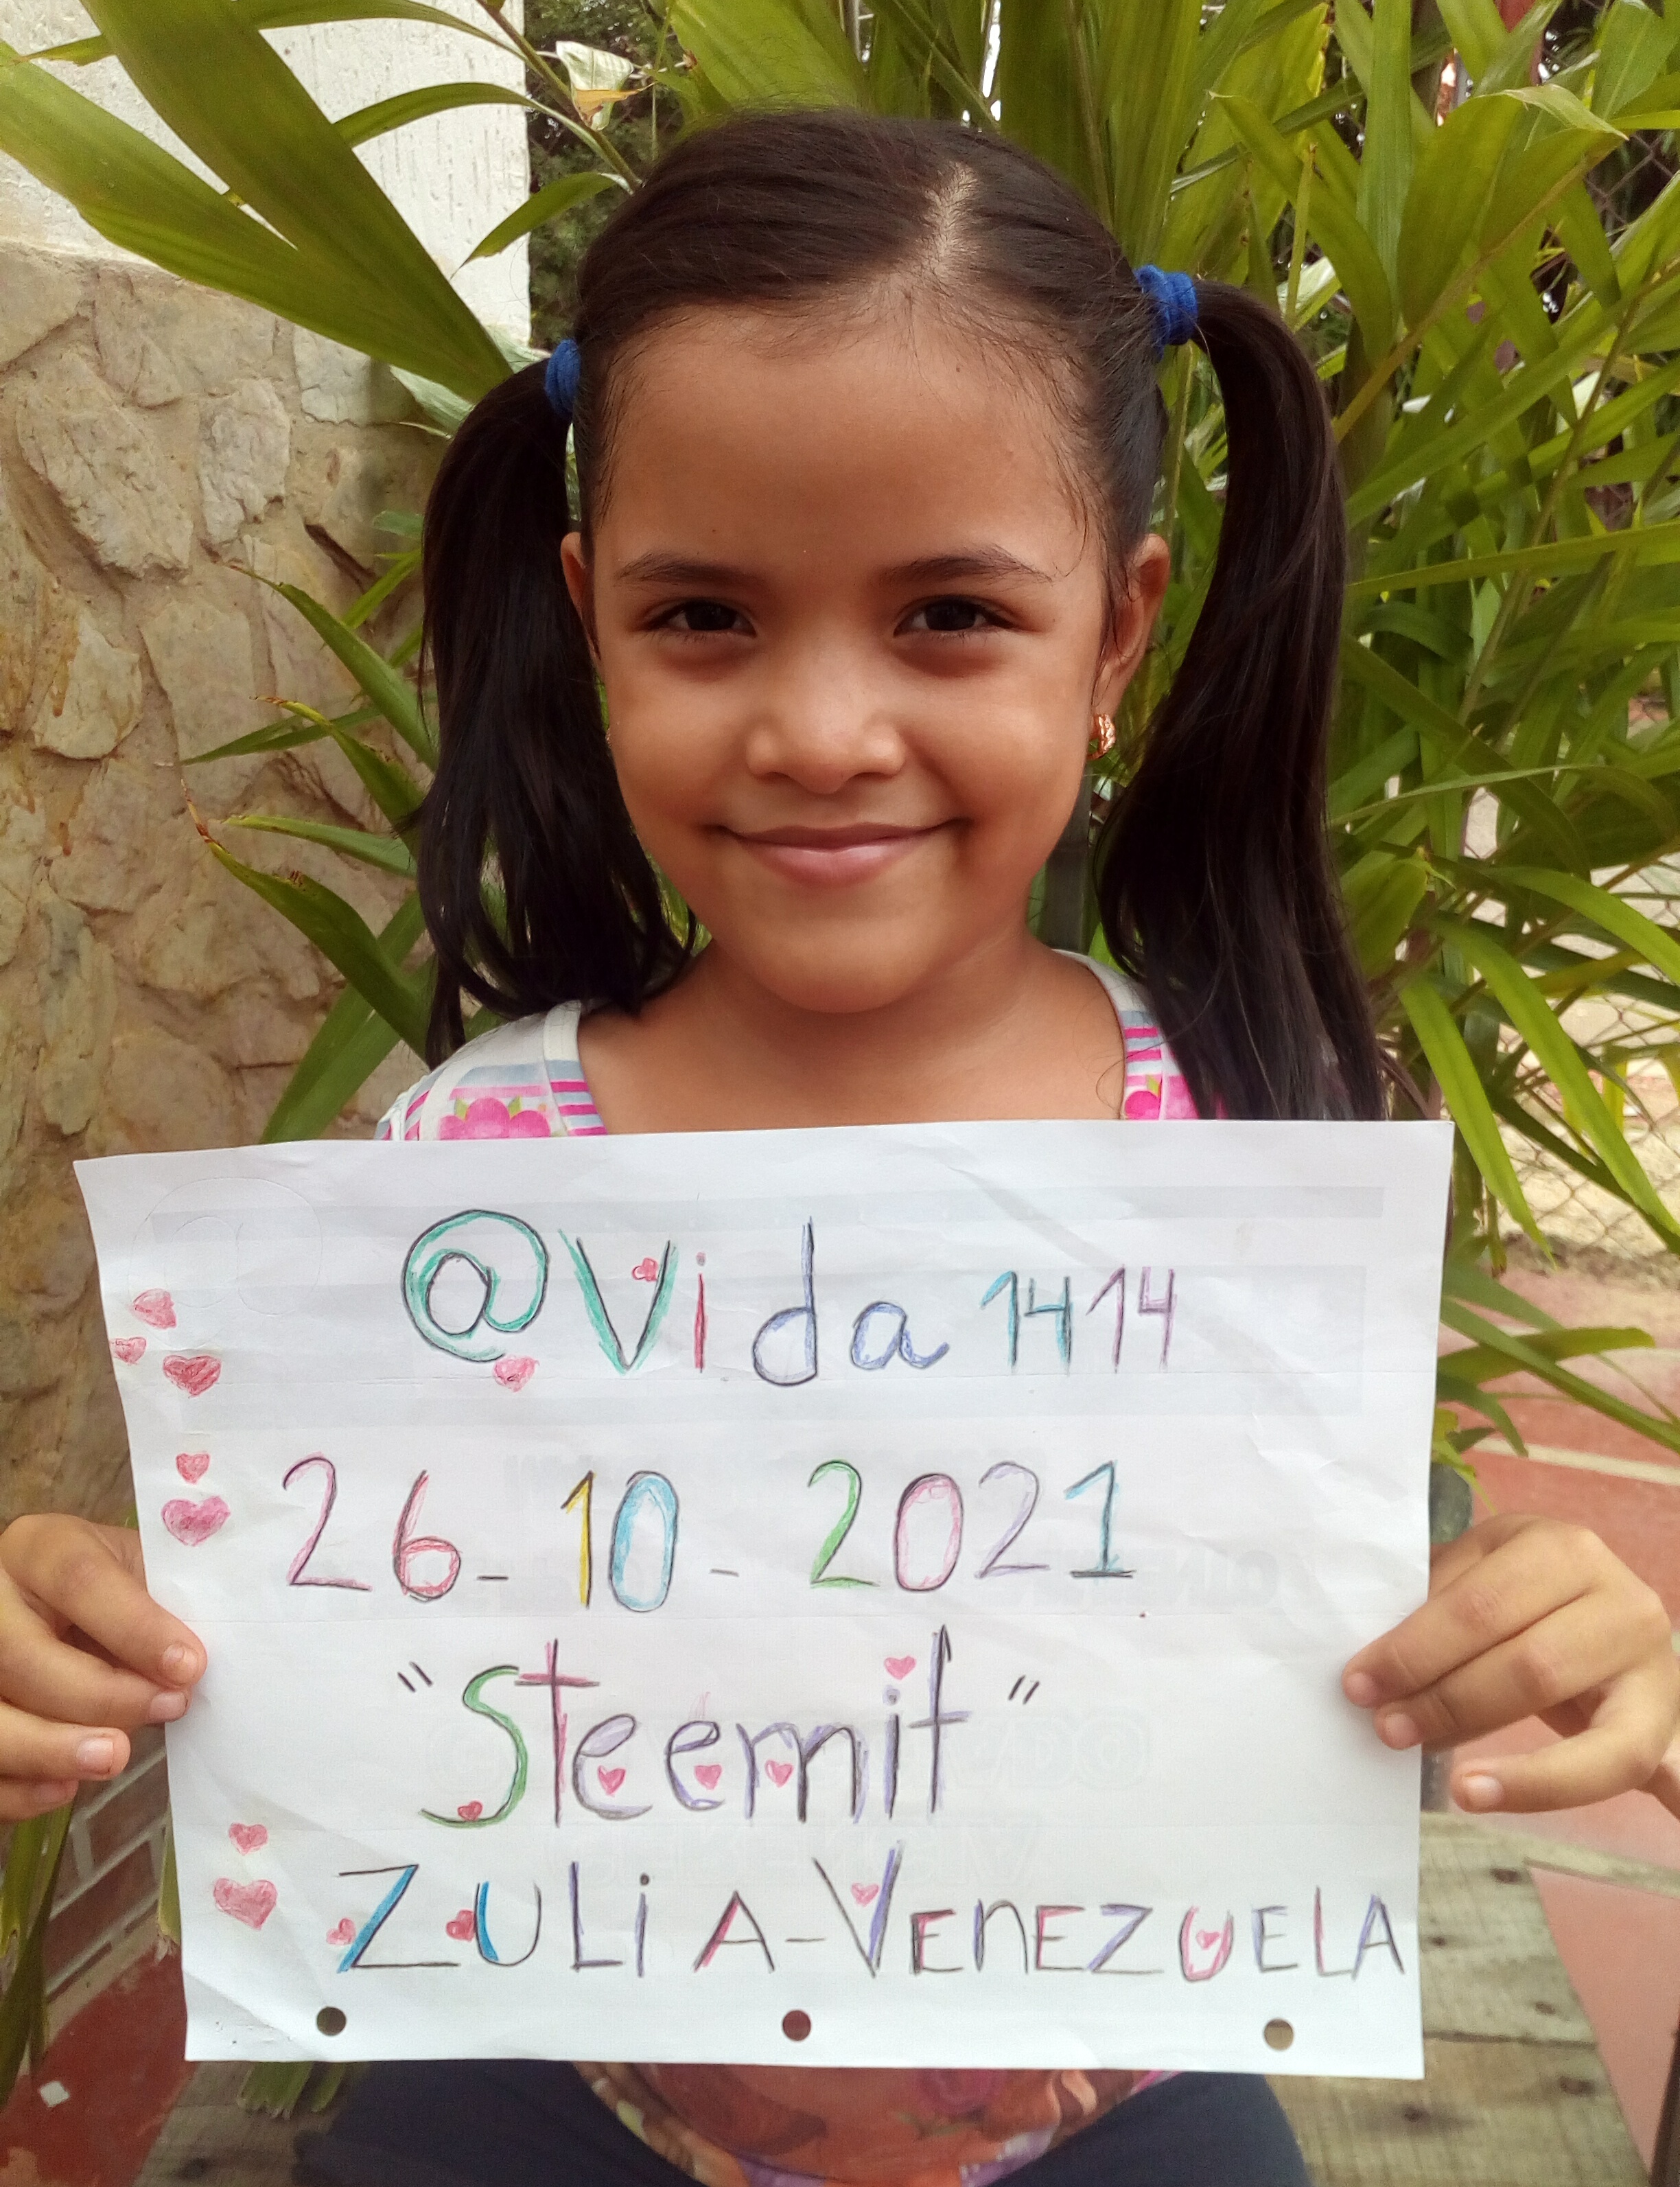 @Vida 1414
26-10-2021
"Steemit"
ZULiA-VENEZUELA